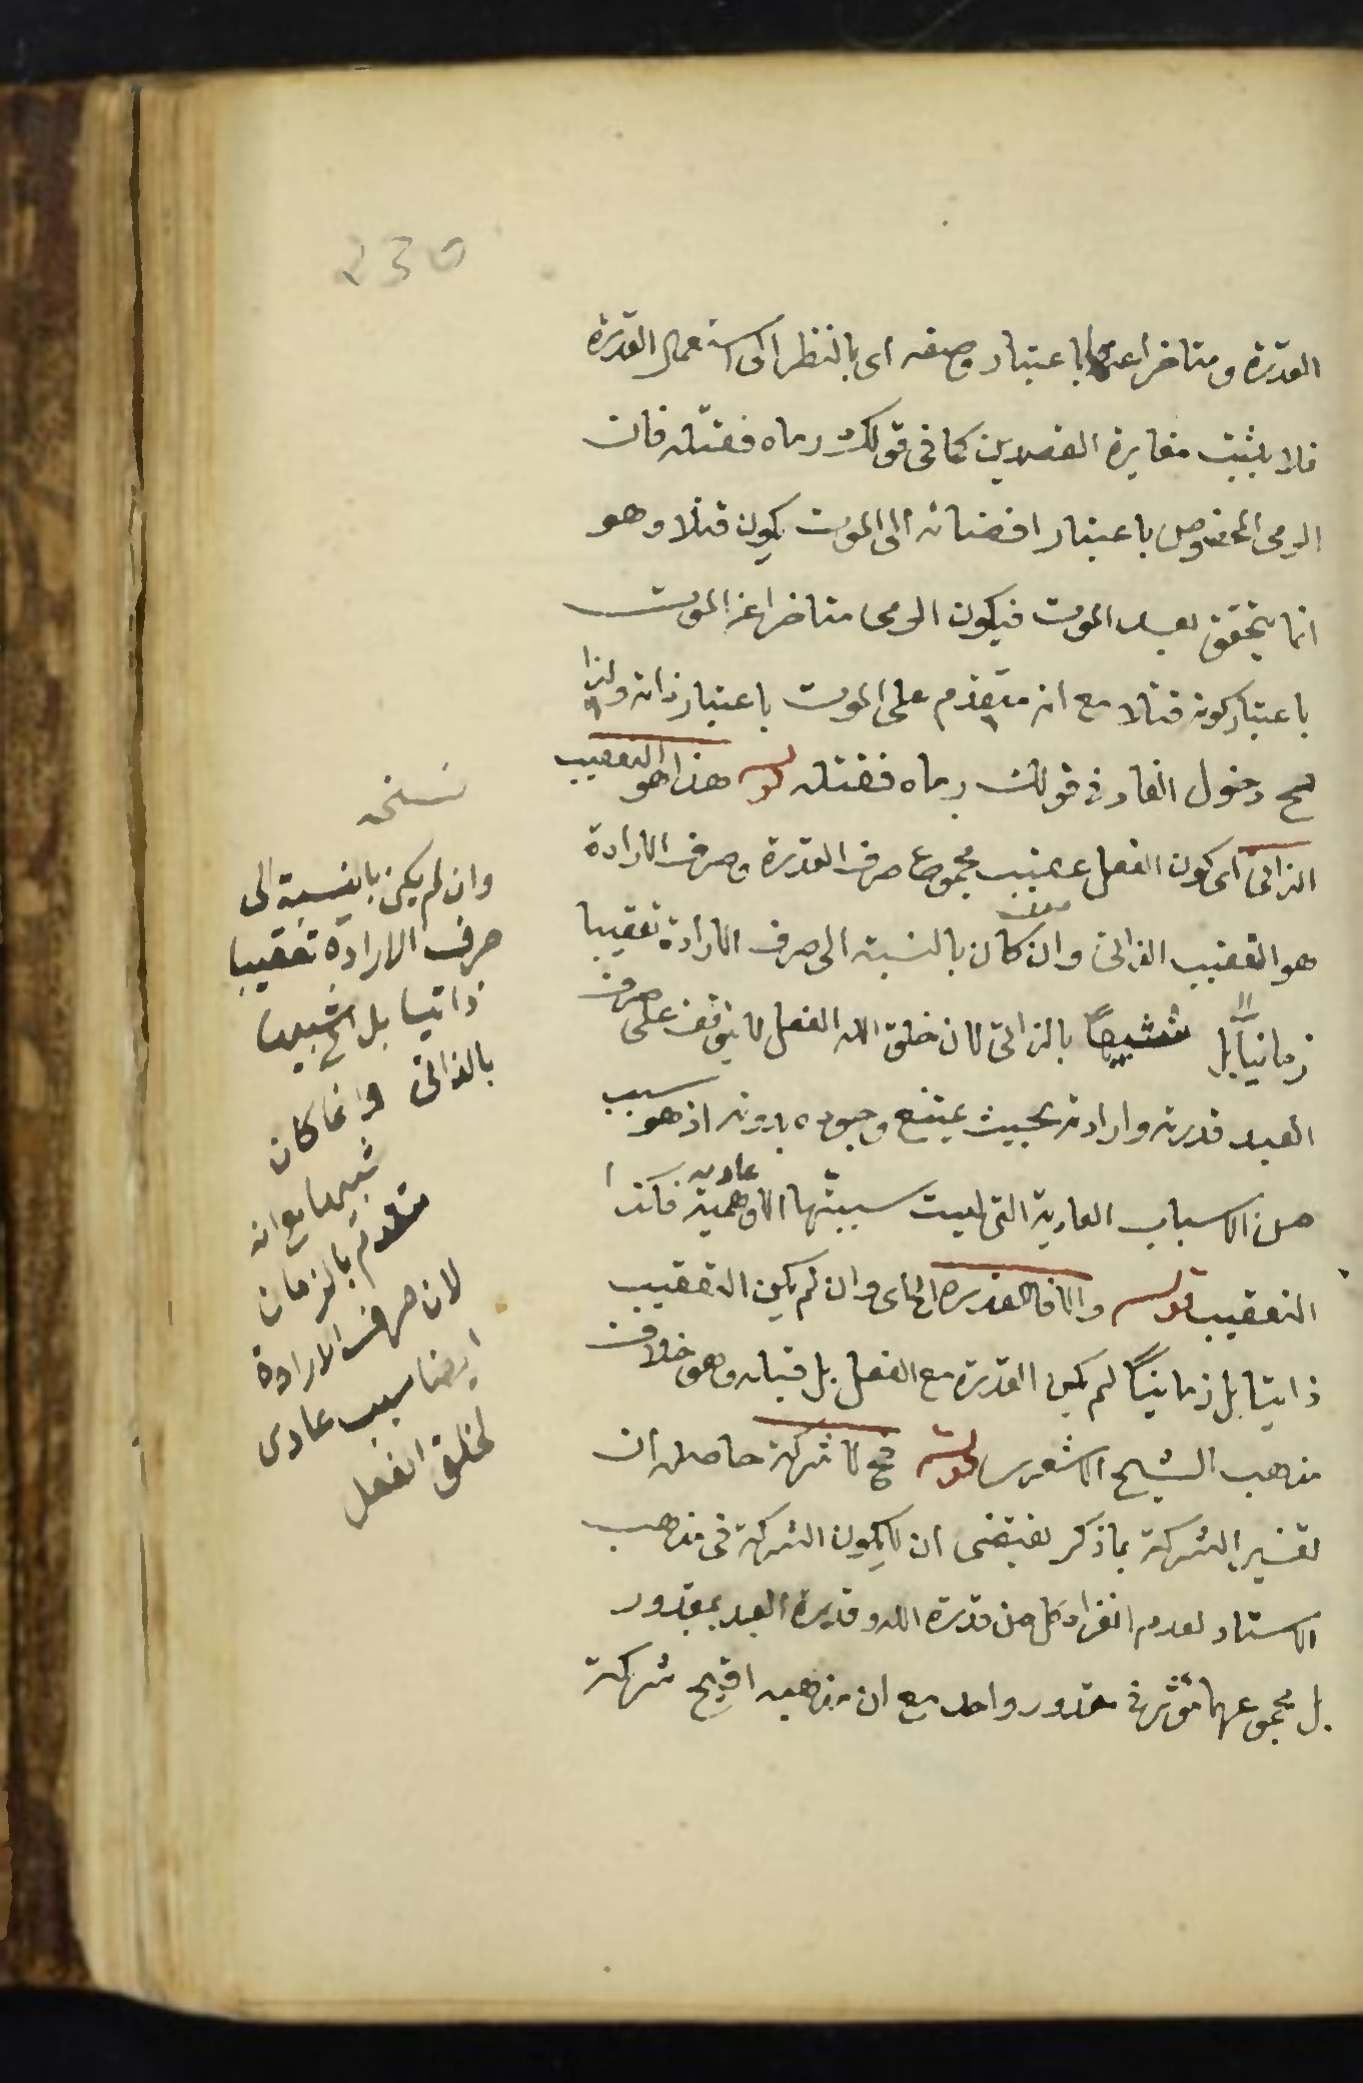 230
القدرة ومتاخرا عنها باعتبار وصفه اى بالنظر الى استعمال القدرة
فلا يثبت مغايرة القصدين كما فى قولك رماه فقتله فان
الرمى المخصوص باعتبار افضائه الى الموت يكون قتلا وهو
انما يتحقق بعد الموت فيكون الرمى متاخرا عن الموت
باعتبار كونه قتلا مع انه متقدم على الموت باعتبار ذاته ولذا
صح دخول الفاء فى قولك رماه فقتله قوله هذا هو التعقيب
الذاتى اى كون الفعل عقيب مجموع صرف القدرة وصرف الارادة
هو التعقيب الذاتى وان كان بالنسبة الى صرف الارادة تعقيبا
زمانيا بل شبيها بالذاتى لان خلق الله الفعل لا يتوقف على صرف
العبد قدرته وارادته بحيث يمتنع وجوده بدونه اذ هو سبب
من الاسباب العادية التى ليست سببيتها الا وهمية عادية فكذا
التعقيب قوله والا فالقدرة الخ اى وان لم يكن التعقيب
ذاتيا بل زمانيا لم يكن القدرة مع الفعل بل قبله وهو خلاف
مذهب الشيخ الاشعرى قوله فح لا شركة حاصله ان
تفسير الشركة بما ذكر يقتضى ان لا يكون الشركة فى مذهب
الاستاد لعدم انفراد كل من قدرة الله وقدرة العبد بمقدور
بل مجموعهما مؤثر فى مقدور واحد مع ان مذهبه اقبح شركة
نسخه
وان لم يكن بالنسبة الى
صرف الارادة تعقيبا
ذاتيا بل شبيها
بالذاتى وانما كان
شبيها مع انه
متقدم بالزمان
لان صرف الارادة
ايضا سبب عادى
لخلق الفعل